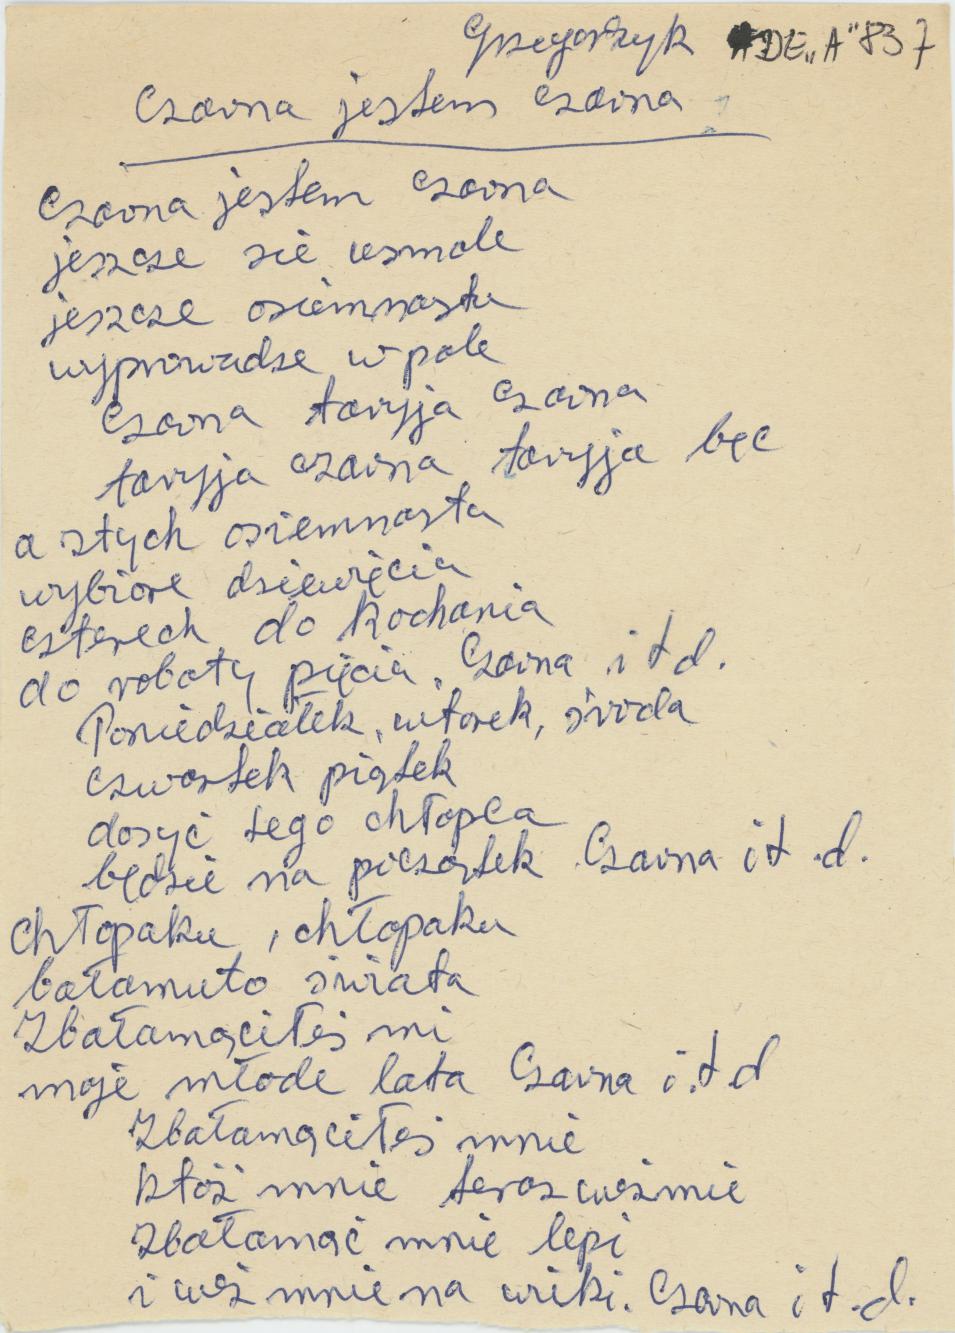 Grzegorzyk DE„A"83 7
Czarna jestem czarna
Czarna jestem czarna
jeszcze sie usmole
jeszcze osiemnastu
wyprowadze w pole
Czarna taryja czarna
taryja czarna taryja bęc
a stych osiemnasta
wybiore dziewięcia
czterech do kochania
do roboty pięcia. Czarna i t d.
Poniedziałek, wtorek, środa
czwartek piątek
dosyć tego chłopca
będzie na początek Czarna i t .d.
Chłopaku, chłopaku
bałamuto świata
Zbałamąciłeś mi
moje młode lata Czarna i.t d
Zbałamąciłeś mnie
któż mnie teroz weźmie
Zbałamąć mnie lepi
i weź mnie na wieki. Czarna i t.d.